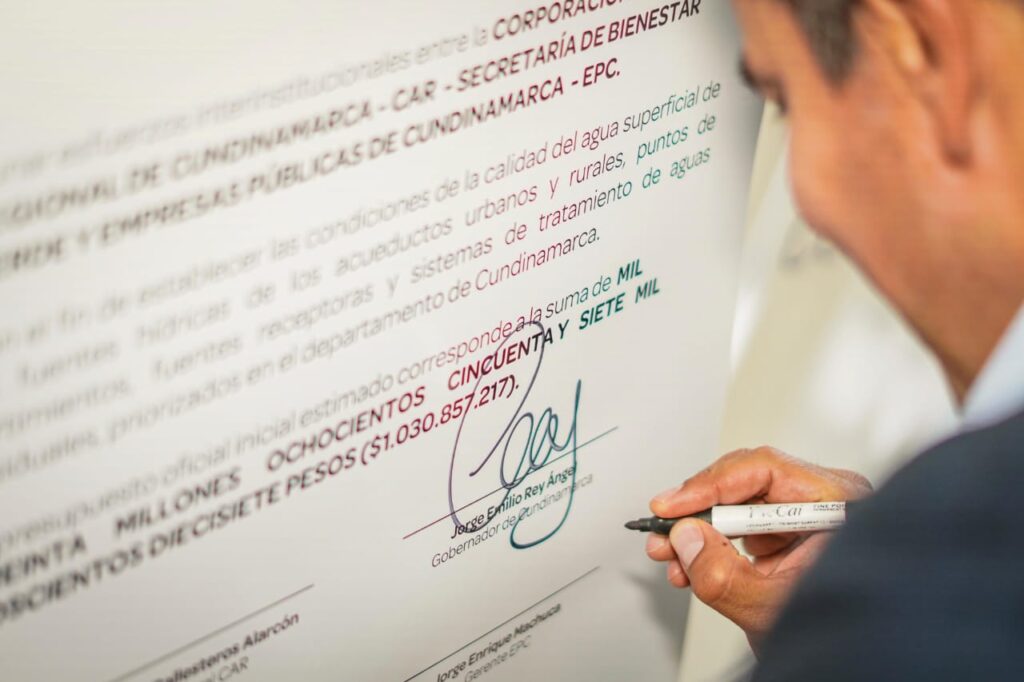 esfuerzos interinstitucionales entre la CORPORACIÓN
REGIONAL DE CUNDINAMARCA - CAR - SECRETARÍA DE BIENESTAR
VERDE Y EMPRESAS PÚBLICAS DE CUNDINAMARCA - EPC.
el fin de establecer las condiciones de la calidad del agua superficial de
fuentes hídricas de los acueductos urbanos y rurales, puntos de
fuentes receptoras y sistemas de tratamiento de aguas
priorizados en el departamento de Cundinamarca.
presupuesto oficial inicial estimado corresponde a la suma de MIL
TREINTA MILLONES OCHOCIENTOS CINCUENTA Y SIETE MIL
DOSCIENTOS DIECISIETE PESOS ($1.030.857.217).
Rey
Jorge Emilio Rey Ángel
Gobernador de Cundinamarca
Ballesteros Alarcón
CAR
Jorge Enrique Machuca
Gerente EPC